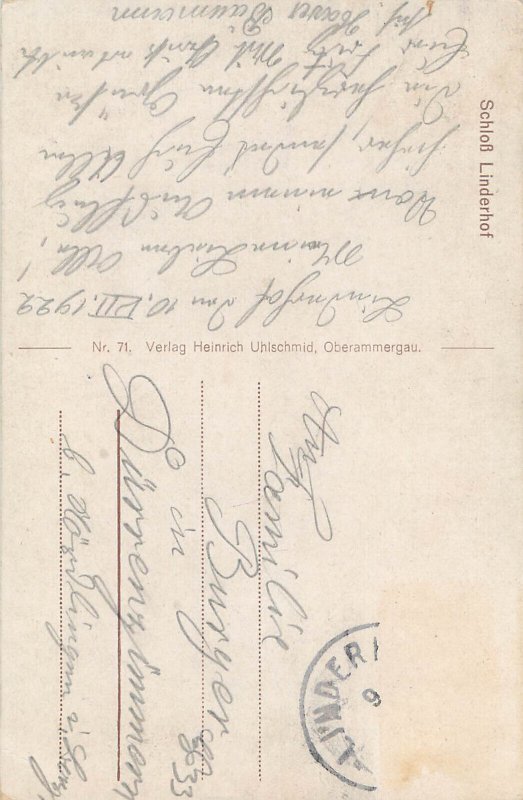 Schloß Linderhof
Linderhof den 10. VII. 1922
Meine Lieben Alle!
Von meinem Ausflug
hieher, sendet Euch Allen
die herzlichsten Grüßen
Euer
Xaver Baumann
Nr. 71. Verlag Heinrich Uhlschmid, Oberammergau.
An
Familie
Burger
in
Dürrenzimmern
b. Nördlingen
LINDER
9